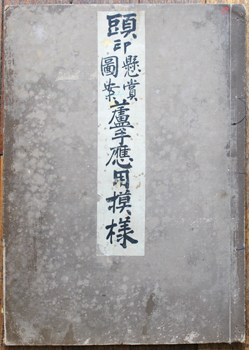 頭印
懸賞
圖案
蘆手應用模樣